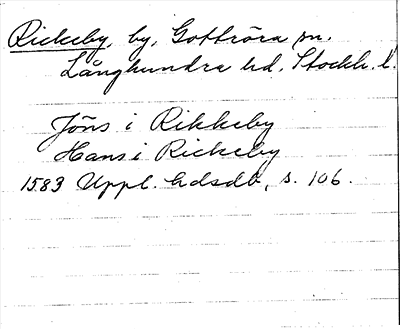 Rickeby, by, Gottröra sn.
Långhundra hd, Stockh. l.
Jöns i Rikkeby
Hans i Rickeby
1583 Uppl. hdsdb, s. 106.